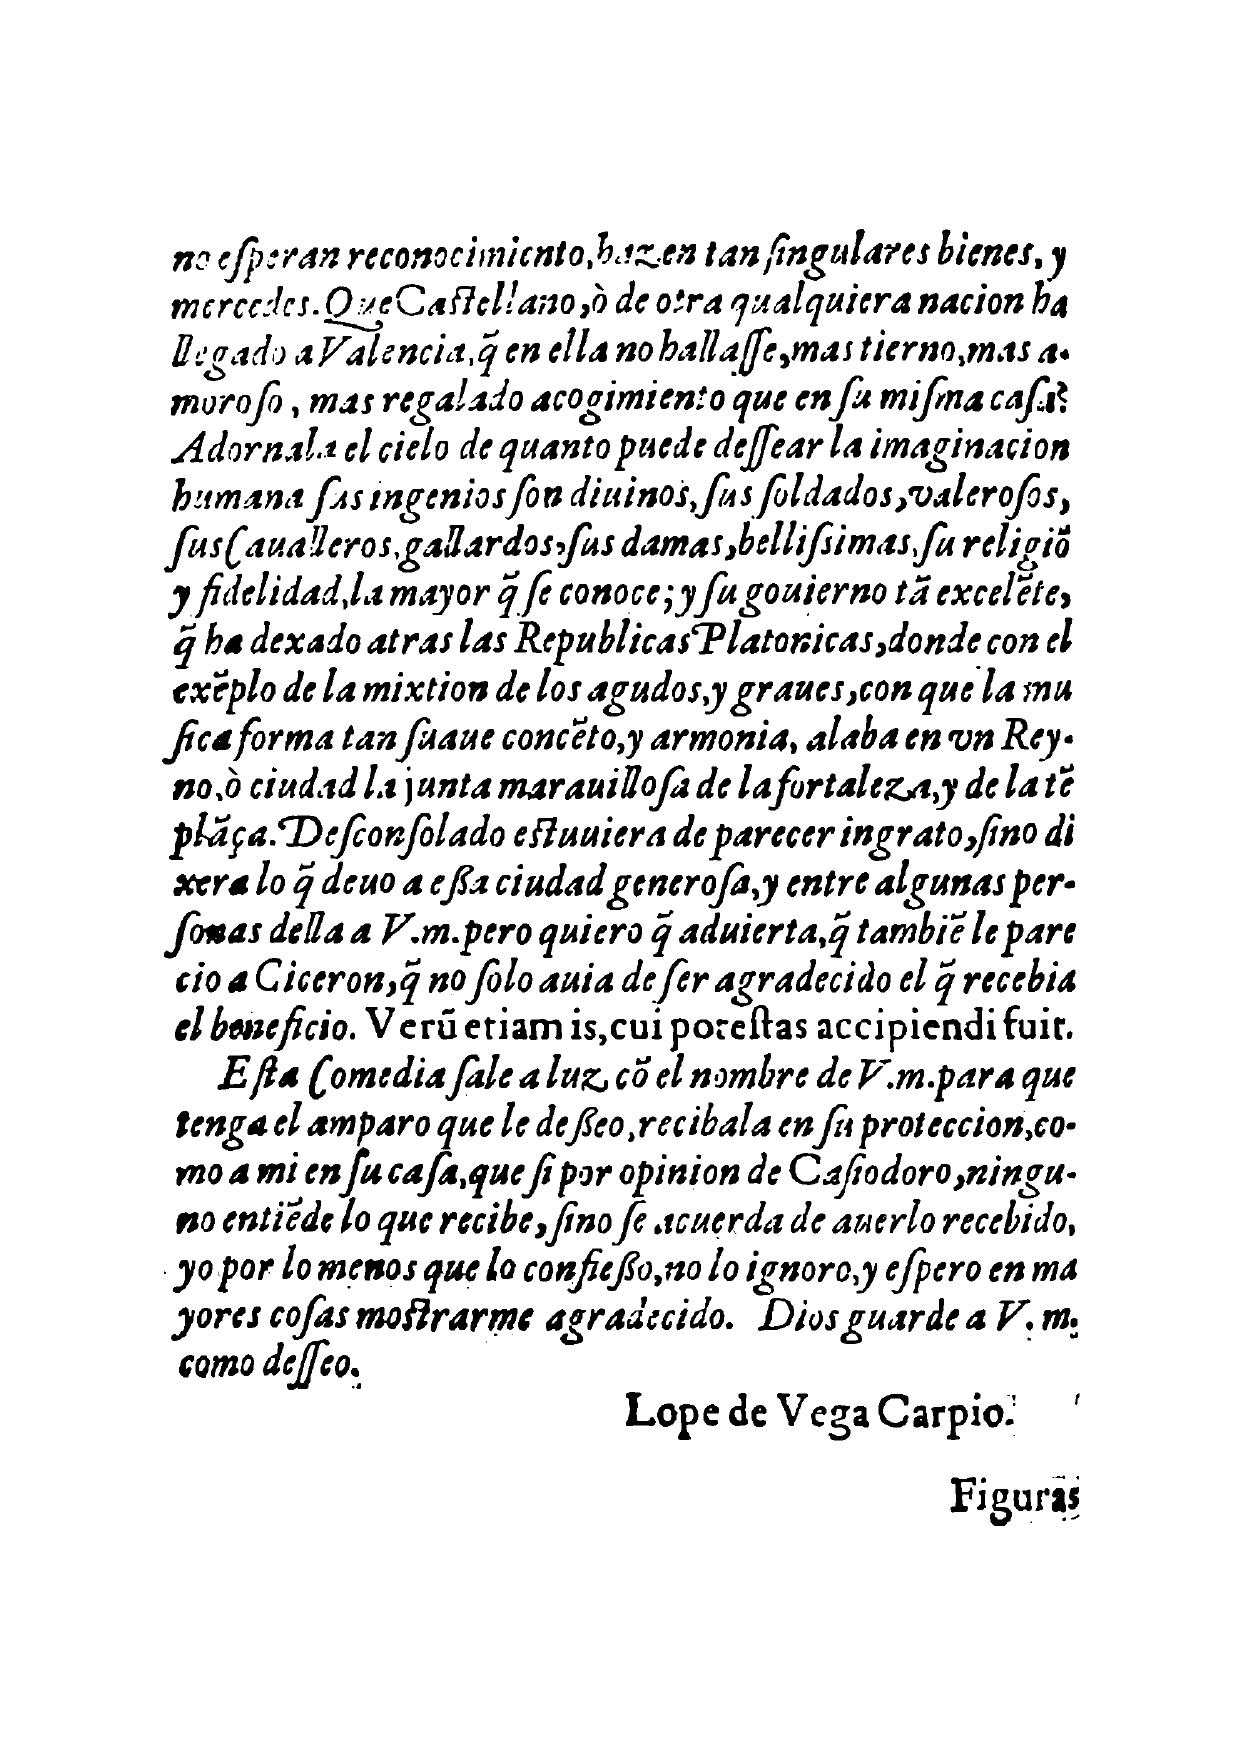 no eſperan reconocimiento,hazen tan ſingulares bienes, y
mercedes. Que Caſtellano,ò de otra qualquiera nacion ha
llegado a Valencia,q̃ en ella no hallaſſe,mas tierno,mas a-
moroſo, mas regalado acogimiento que en ſu miſma caſa?
Adornala el cielo de quanto puede deſſear la imaginacion
humana ſus ingenios ſon diuinos,ſus ſoldados,valeroſos,
ſus Caualleros,gallardos,ſus damas,belliſsimas,ſu religiõ
y fidelidad,la mayor q̃ ſe conoce; y ſu gouierno tã excelẽte,
q̃ ha dexado atras las Republicas Platonicas,donde con el
exẽplo de la mixtion de los agudos,y graues,con que la mu
ſica forma tan ſuaue concẽto,y armonia, alaba en vn Rey-
no,ò ciudad la junta marauilloſa de la fortaleza,y de la tẽ
plãça. Deſconſolado eſtuuiera de parecer ingrato,ſino di
xera lo q̃ deuo a eſſa ciudad generoſa,y entre algunas per-
ſonas della a V.m.pero quiero q̃ aduierta,q̃ tambiẽ le pare
cio a Ciceron,q̃ no ſolo auia de ſer agradecido el q̃ recebia
el beneficio. Verũ etiam is,cui poteſtas accipiendi fuit.
Eſta Comedia ſale a luz cõ el nombre de V.m.para que
tenga el amparo que le deſſeo,recibala en ſu proteccion,co-
mo a mi en ſu caſa,que ſi por opinion de Caſiodoro,ningu-
no entiẽde lo que recibe,ſino ſe acuerda de auerlo recebido,
yo por lo menos que lo confieſſo,no lo ignoro,y eſpero en ma
yores coſas moſtrarme agradecido. Dios guarde a V. m.
como deſſeo.
Lope de Vega Carpio.
Figuras